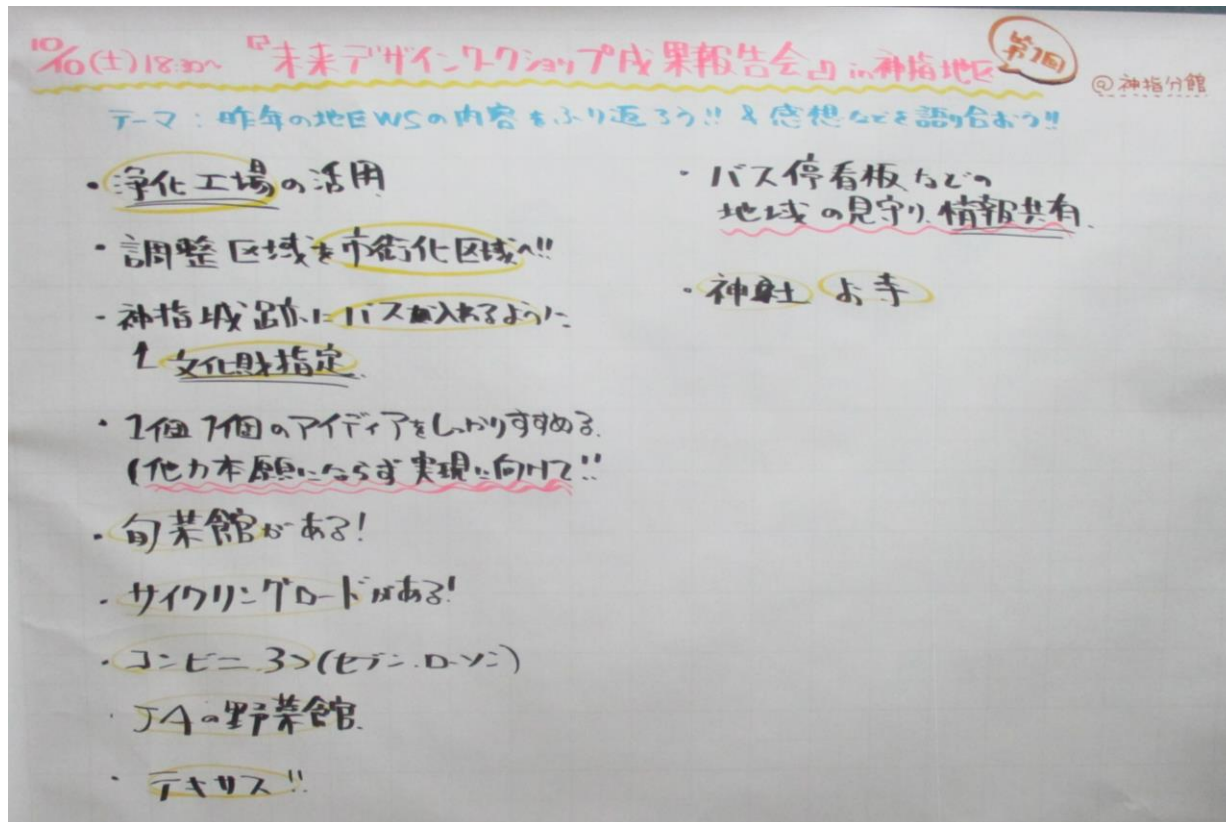 10/10(土)18:30~ 『未来デザインワークショップ成果報告会』in神指地区 第1回 @神指分館
テーマ:昨年の地区WSの内容をふり返ろう!! & 感想などを語り合おう!!
・浄化工場の活用
・調整区域を市街化区域へ!!
・神指城跡にバスが入れるように
↑文化財指定
・1個1個のアイディアをしっかりすすめる
(他力本願にならず実現に向けて!!
・旬菜館がある!
・サイクリングロードがある!
・コンビニ3つ(セブン.ローソン)
・JAの野菜館
・テキサス!!
・バス停看板などの
地域の見守り、情報共有
・神社 お寺